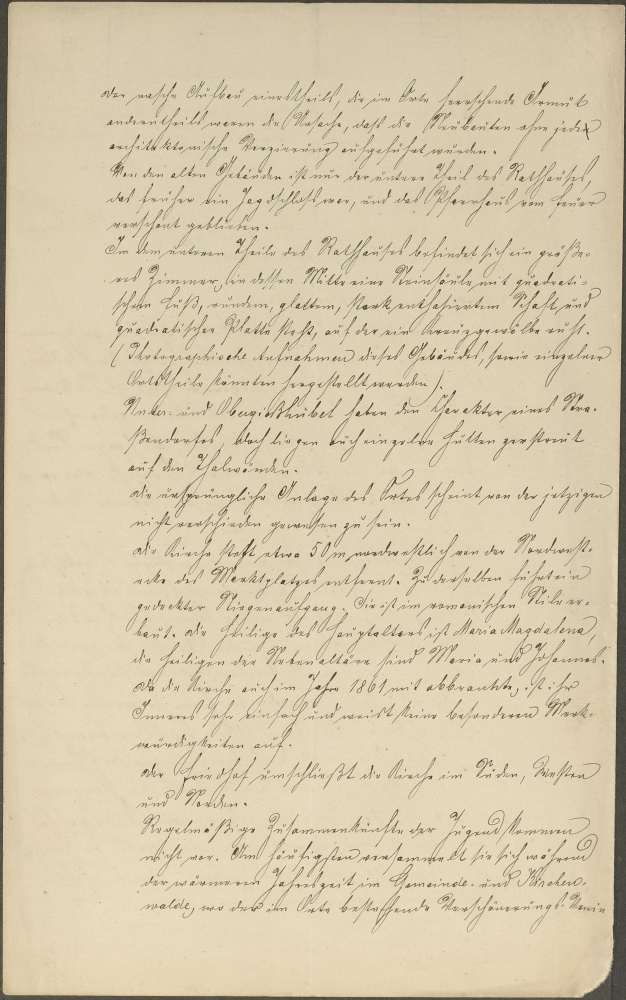 der rasche Aufbau einestheils, die im Orte herrschende Armut
anderntheils waren die Ursache, daß die Neubauten ohne jede
architektonische Verzierung aufgeführt wurden.
Von den alten Gebäuden ist nur der untere Theil des Rathhauses,
das früher ein Jagdschloß war, und das Pfarrhaus vom Feuer
verschont geblieben.
In dem unteren Theile des Rathhauses befindet sich ein größe-
res Zimmer, in dessen Mitte eine Steinsäule mit quadrati-
schem Fuß, rundem, glattem, stark Schaft, und
quadratischer Platte steht, auf der ein Kreuzgewölbe ruht.
(Photographische Aufnahmen dieses Gebäudes, sowie einzelner
Ortstheile könnten hergestellt werden).
Unter- und Obergießhübel haben den Charakter eines Stra-
ßendorfes, doch liegen auch einzelne Hütten zerstreut
auf den Thalwänden.
Die ursprüngliche Anlage des Ortes scheint von der jetzigen
nicht verschieden gewesen zu sein.
Die Kirche steht etwa 50 m nordwestlich von der Nordwest-
ecke des Marktplatzes entfernt. Zu derselben führt ein
gedeckter Stiegenaufgang. Sie ist im romanischen Stile er-
baut. Die Heilige des Hauptaltars ist Maria Magdalena,
die Heiligen der Nebenaltäre sind Maria und Johannes.
Da die Kirche auch im Jahre 1861 mit abbrannte, ist ihr
Inneres sehr einfach und weist keine besonderen Merk-
würdigkeiten auf.
Der Friedhof umschließt die Kirche im Süden, Westen
und Norden.
Regelmäßige Zusammenkünfte der Jugend kommen
nicht vor. Am häufigsten versammelt sie sich während
der wärmeren Jahreszeit im Gemeinde- und Kirchen-
walde, wo der im Orte bestehende Verschönerungs-Verein